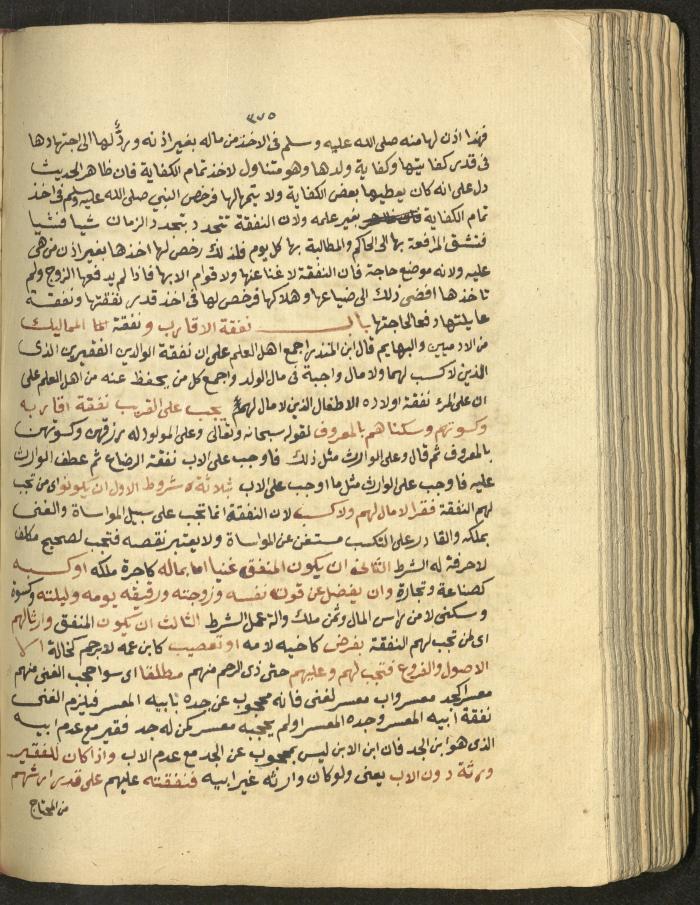 ٣٧٥
فهذا اذن لها منه صلى الله عليه وسلم في الاخذ من ماله بغير اذنه ورد لها الى اجتهادها
في قدر كفايتها وكفاية ولدها وهو متناول لاخذ تمام الكفاية فان ظاهر الحديث
دل على انه كان يعطيها بعض الكفاية ولا يتمها لها فرخص النبي صلى الله عليه وسلم في اخذ
تمام الكفاية بغير علمه ولان النفقة تتجدد بتجدد الزمان شيا فشيا
فتشق المرافعة بها الى الحاكم والمطالبة بها كل يوم فلذلك رخص لها اخذها بغير اذن من هي
عليه ولانه موضع حاجة فان النفقة لا غنا عنها ولا قوام الا بها فاذا لم يدفعها الزوج ولم
تاخذها افضى ذلك الى ضياعها وهلاكها فرخص لها في اخذ قدر نفقتها ونفقة
عايلتها دفعا لحاجتها باب نفقة الاقارب ونفقة المماليك
من الادميين والبهايم قال ابن المنذر اجمع اهل العلم على ان نفقة الوالدين الفقيرين الذي
الذين لا كسب لهما ولا مال واجبة في مال الولد واجمع كل من يحفظ عنه من اهل العلم على
ان على المرء نفقة اولاده الاطفال الذين لا مال لهم يجب على القريب نفقة اقاربه
وكسوتهم وسكناهم بالمعروف لقوله سبحانه وتعالى وعلى المولود له رزقهن وكسوتهن
بالمعروف ثم قال وعلى الوارث مثل ذلك فاوجب على الاب نفقة الرضاع ثم عطف الوارث
عليه فاوجب على الوارث مثل ما اوجب على الاب بثلاثة شروط الاول ان يكونوا اي من تجب
لهم النفقة فقرا لا مال لهم ولا كسب لان النفقة انما تجب على سبيل المواساة والغني
بملكه والقادر على التكسب مستغن عن المواساة ولا يعتبر نقصه فتجب لصحيح مكلف
لا حرفة له الشرط الثاني ان يكون المنفق غنيا اما بماله كاجرة ملكه او كسبه
كصناعة وتجارة وان يفضل عن قوت نفسه وزوجته ورقيقه يومه وليلته وكسوة
وسكنى لا من راس المال وثمن ملك والة عمل الشرط الثالث ان يكون المنفق وارثا لهم
اي لمن تجب لهم النفقة بفرض كاخيه لامه او تعصيب كابن عمه لا برحم كخاله الا
الاصول والفروع فتجب لهم وعليهم حتى ذي الرحم منهم مطلقا اي سوا حجب الغني منهم
معسر كجد معسر واب معسر لغني فانه محجوب عن جده بابيه المعسر فيلزم الغني
نفقة ابيه المعسر وجده المعسر او لم يحجبه معسر كمن له جد فقير مع عدم ابيه
الذي هو ابن الجد فان ابن الابن ليس بمحجوب عن الجد مع عدم الاب واذا كان للفقير
ورثة دون الاب يعني ولو كان وارثه غير ابيه فنفقته عليهم على قدر ارثهم
من المحتاج